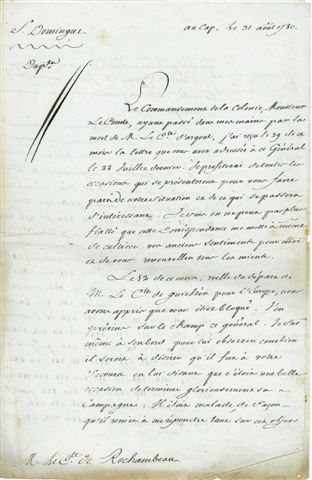 St. Domingue.
au Cap, Le 31. août 1780.
Dupta
Le Commandement de la Colonie, Monsieur
Le Comte, ayant passé dans mes mains par la
mort de M. Le Cte. d'argout, j'ai reçu le 29 de ce
mois la lettre que vous avez adressée à ce Général
le 22 Juillet dernier. Je profiterai de toutes les
occasions qui se présenteront pour vous faire
part de notre situation et de ce qui se passera
d'intéressant. Je suis on ne peut pas plus
flatté que cette Correspondance me mette à même
de cultiver vos anciens sentiments pour moi
et de vous renouveller tous les miens.
Le 12 de ce mois, veille du départ de
M. Le Cte. de guichen pour l'Europe, nous
avons appris que vous étiez bloqué. J'en
prévins sur le champ ce général. Je fus
même à son bord pour lui observer combien
il seroit à désirer qu'il fut à votre
secours en lui disant que c'étoit une belle
occasion de terminer glorieusement sa
Campagne. Il étoit malade, de façon
qu'il remit à me répondre tant sur cet objet
M. Le Cte. de Rochambeau